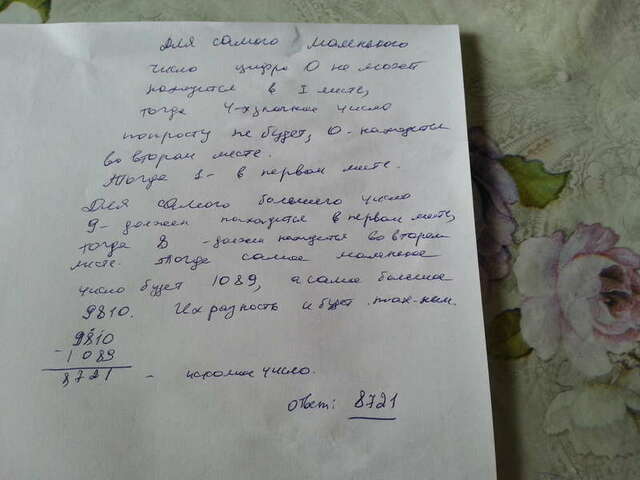 Для самого маленького
число цифра 0 не может
находится в I месте,
тогда 4-хзначное число
попросту не будет, 0-находится
во втором месте.
Тогда 1- в первом месте.
Для самого большего число
9- должен находится в первом месте,
тогда 8 -должен находится во втором
месте. Тогда самое маленькое
число будет 1089, а самое большое
9810. Их разность и будет
9810
- 1089
8721 - искомое число.
Ответ: 8721